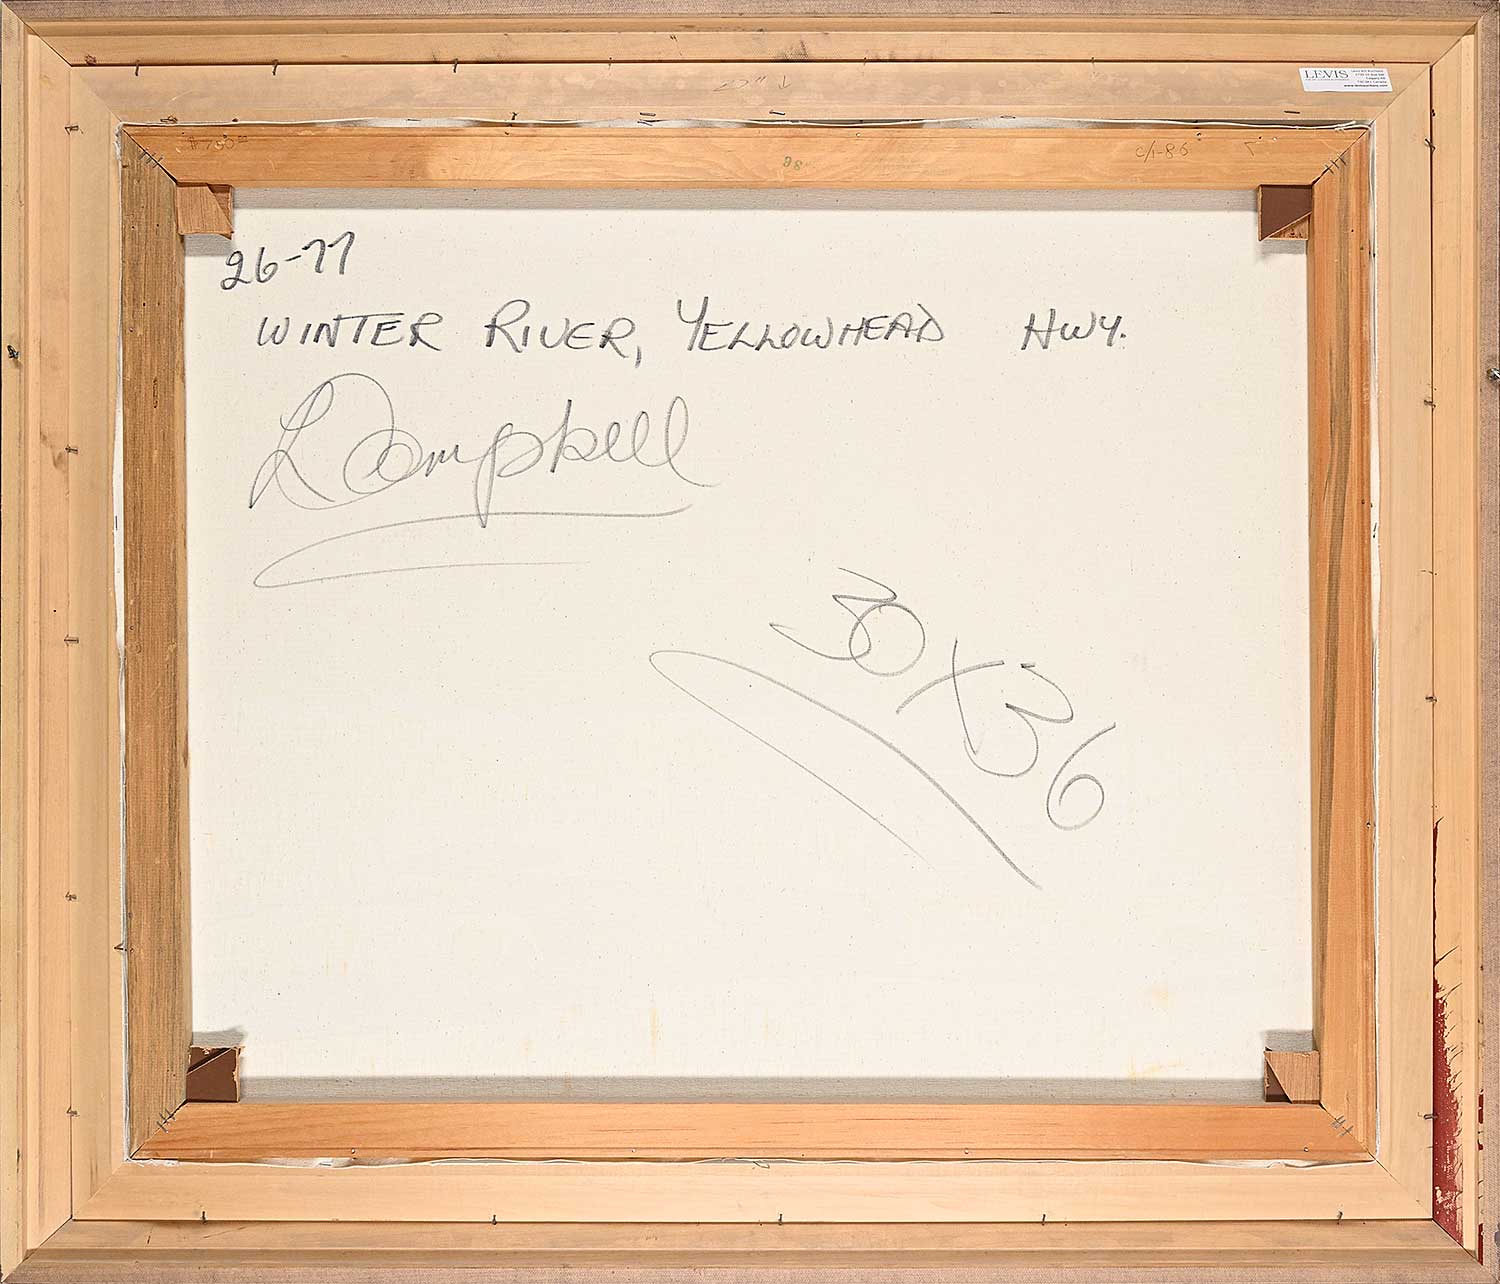 LEVIS
26-77
WINTER RIVER, YELLOWHEAD HWY.
L Campbell
30X36
c/1-86